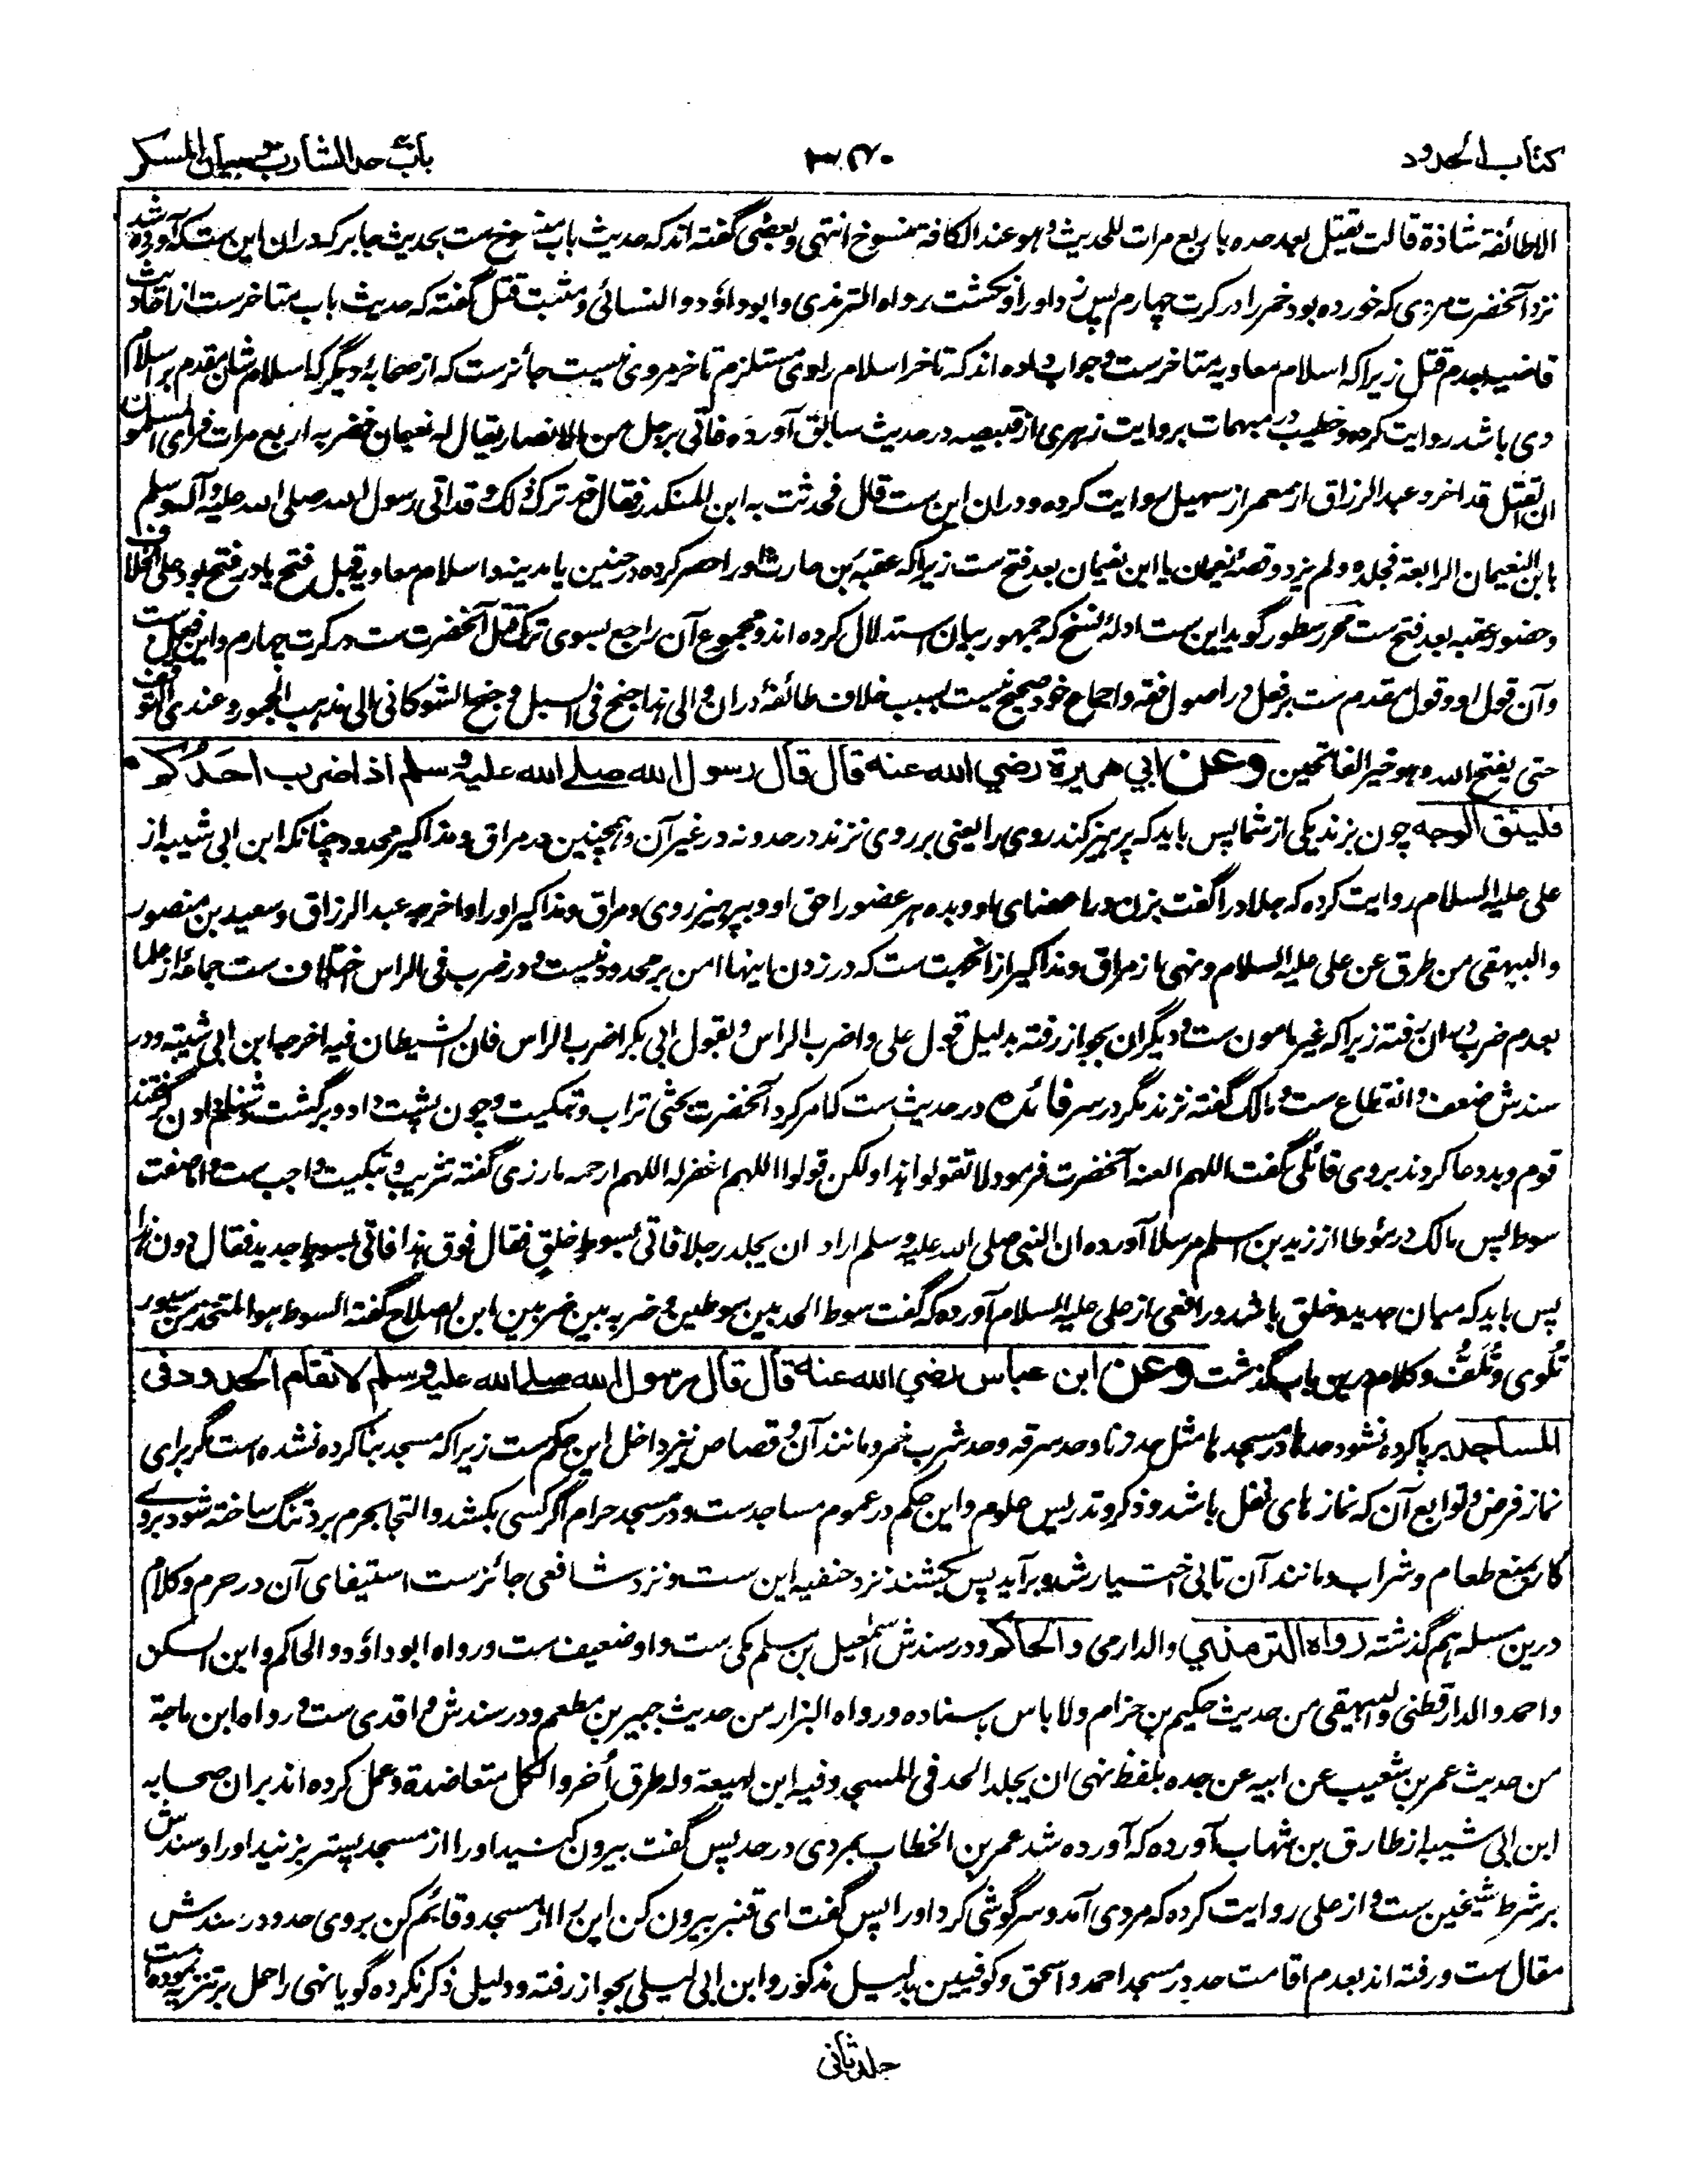 کتاب الحدود
۴۷۰
باب حد الشارب و بیان المسکر
الا طائفة شاذة قالت یقتل بعد حده باربع مرات للحدیث و هو عند الکافة منسوخ انتهی و بعضی گفته اند که حدیث باب منسوخ ست بحدیث جابر که در ان این ست که آورده شد
نزد آنحضرت مردی که خورده بود خمر را در کرت چهارم پس زد او را و نکشت رواه الترمذی و ابو داؤد و النسائی و مثبت قتل گفته که حدیث باب متاخر ست از احادیث
قاضیه بعدم قتل زیرا که اسلام معاویه متاخر ست و جواب داده اند که تاخر اسلام راوی مستلزم تاخر مروی نیست جائز ست که از صحابۀ دیگر که اسلام شان مقدم بر اسلام
وی باشد روایت کرده و خطیب در مبهمات بروایت زهری از قبیصه در حدیث سابق آورده فاتی برجل من الانصار یقال له نعیمان فضربه اربع مرات فرای المسلمون
ان القتل قد اخر و عبد الرزاق از معمر از سهیل روایت کرده و دران این ست قال فحدثت به ابن المنکدر فقال قد ترک ذلک و قد اتی رسول الله صلی الله علیه و آله وسلم
بابن النعیمان الرابعة فجلده و لم یزد و قصۀ نعیمان یا ابن نعیمان بعد فتح ست زیرا که عقبة بن حارث او را حصر کرده در حنین یا مدینه و اسلام معاویه قبل فتح یا در فتح بود علی الخلاف
و حضور عقبه بعد فتح ست محرر سطور گوید این ست ادلۀ نسخ که جمهور بیان استدلال کرده اند و مجموع آن راجع بسوی ترک قتل آنحضرت ست در کرت چهارم و این فعل ست
و آن قول او و قول مقدم ست بر فعل در اصول فقه و اجماع خود صحیح نیست بسبب خلاف طائفۀ دران و الی هذا جنح فی السبل و جنح الشوکانی الی مذهب الجمهور و عندی التوقف
حتی یفتح الله و هو خیر الفاتحین وعن ابی هریرة رضی الله عنه قال قال رسول الله صلے الله علیه وسلم اذا ضرب احدکم
فلیتق الوجه چون بزند یکی از شما پس باید که پرهیز کند روی را یعنی بر روی نزند در حد و نه در غیر آن و همچنین در مراق و مذاکیر محدود چنانکه ابن ابی شیبه از
علی علیه السلام روایت کرده که جلاد را گفت بزن در اعضای او و بده هر عضو را حق او و بپرهیز روی و مراق و مذاکیر او را و اخرجه عبد الرزاق و سعید بن منصور
والبیهقی من طرق عن علی علیه السلام و نهی از مراق و مذاکیر از انجهت ست که در زدن اینها امن بر محدود نیست و در ضرب فی الراس اختلاف ست جماعۀ از علما
بعدم ضرب دران رفته زیرا که غیر مامون ست و دیگران بجواز رفته بدلیل قول علی و اضرب الراس و بقول ابی بکر اضرب الراس فان الشیطان فیه اخرجه ابن ابی شیبه و در
سندش ضعف و انقطاع ست و مالک گفته نزند مگر در سر فائده در حدیث ست که امر کرد آنحضرت بحثی تراب و تبکیت و چون پشت داد و برگشت دشنام دادن گرفتند
قوم و بد دعا کردند بروی قائلی گفت اللهم العنه آنحضرت فرمود لا تقولوا هذا و لکن قولوا اللهم اغفر له اللهم ارحمه مازری گفته تثریب و تبکیت واجب ست و اما صفت
سوط پس مالک در مؤطا از زید بن اسلم مرسلا آورده ان النبی صلی الله علیه وسلم اراد ان یجلد رجلا فاتی بسوط خلق فقال فوق هذا فاتی بسوط جدید فقال دون هذا
پس باید که میان جدید و خلق باشد و رافعی از علی علیه السلام آورده که گفت سوط الحد بین سوطین و ضربه بین ضربین ابن الصلاح گفته السوط هو المتخذ من سیور
تُلوی و تُلَفُّ و کلام درین باب گذشت وعن ابن عباس رضی الله عنه قال قال رسول الله صلے الله علیه وسلم لا تقام الحدود فی
المساجد برپا کرده نشود حدها در مسجدها مثل حد زنا و حد سرقه و حد شرب خمر و مانند آن و قصاص نیز داخل این حکم ست زیرا که مسجد بنا کرده نشده است مگر برای
نماز فرض و توابع آن که نمازهای نفل باشد و ذکر و تدریس علوم و این حکم در عموم مساجد ست و در مسجد حرام اگر کسی بکشد و التجا بحرم برد تنگ ساخته شود بروے
کار بمنع طعام و شراب و مانند آن تا بی اختیار شده برآید پس بکشند نزد حنفیه این ست و نزد شافعی جائز ست استیفای آن در حرم و کلام
درین مسئله هم گذشته رواه الترمذی والدارمی والحاکم و در سندش اسمٰعیل بن مسلم مکی ست و او ضعیف ست و رواه ابو داؤد و الحاکم و ابن السکن
و احمد و الدارقطنی و البیهقی من حدیث حکیم بن حزام و لا باس باسناده و رواه البزار من حدیث جبیر بن مطعم و در سندش واقدی ست و رواه ابن ماجة
من حدیث عمر بن شعیب عن ابیه عن جده بلفظ نهی ان یجلد الحد فی المسجد و فیه ابن لهیعة و له طرق أخر و الکل متعاضدة و عمل کرده اند بران صحابه
ابن ابی شیبه از طارق بن شهاب آورده که آورده شد عمر بن الخطاب بمردی در حد پس گفت بیرون کنید او را از مسجد پستر بزنید او را و سندش
بر شرط شیخین ست و از علی روایت کرده که مردی آمد و سرگوشی کرد او را پس گفت ای قنبر بیرون کن این را از مسجد و قائم کن بروی حد و در سندش
مقال ست و رفته اند بعدم اقامت حد در مسجد احمد و اسحق و کوفیین بدلیل مذکور و ابن ابی لیلی بجواز رفته و دلیلی ذکر نکرده گویا نهی را حمل بر تنزیه نموده است
جلد ثانی